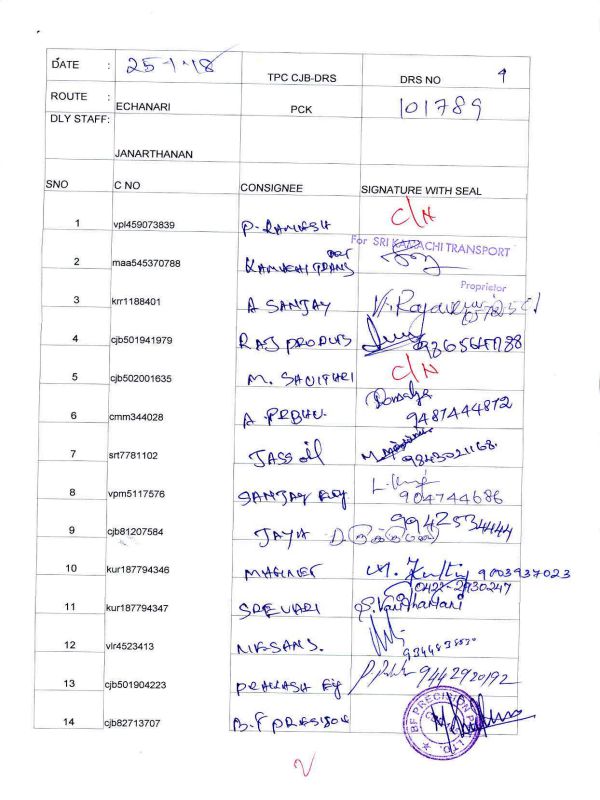 DATE : 25-1-18 TPC CJB-DRS DRS NO 9
ROUTE : ECHANARI PCK 101789
DLY STAFF: JANARTHANAN
SNO C NO CONSIGNEE SIGNATURE WITH SEAL
1 vpl459073839 P. RAMESH C/N
For SRI KAMACHI TRANSPORT
2 maa545370788 KAMACHI TRANS
Proprietor
3 krr1188401 A SANJAY
4 cjb501941979 RAJ PRODUS
5 cjb502001635 M. SAVITHRI C/N
6 cmm344028 A. PRBHU 9487444872
7 srt7781102 JASS oil 9843021168.
8 vpm5117576 SANJAY Eng L. 904744686
9 cjb81207584 JAYA 9942534444
10 kur187794346 MAGNET M. Kutty 9003937023
0422-2930247
11 kur187794347 SREVARI S. Vanithamani
12 vlr4523413 NISSAN S.
13 cjb501904223 PRAKASH Eg 9442920192
14 cjb82713707 B.F PRESISON BF PRECISION P LTD.